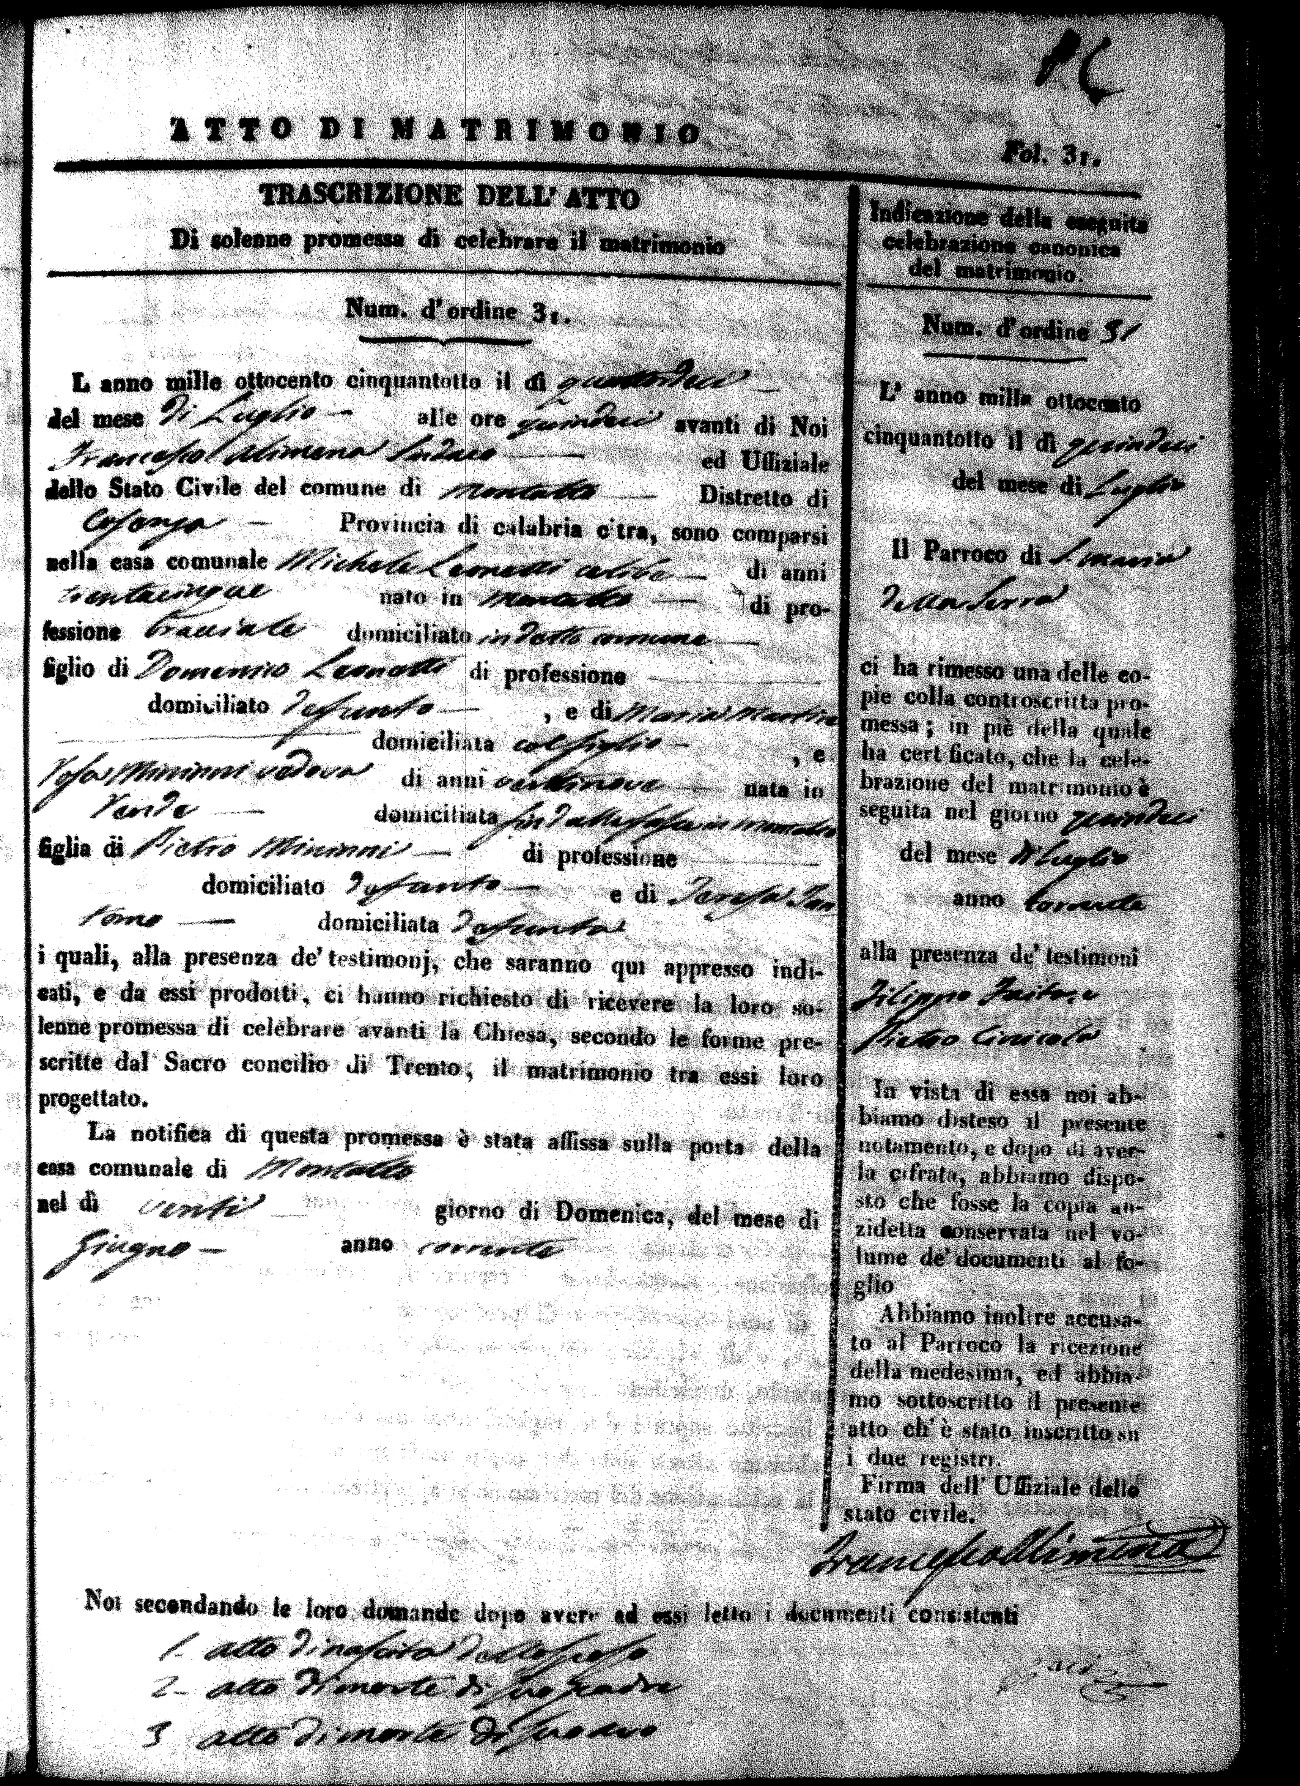 ATTO DI MATRIMONIO
Fol. 31.
TRASCRIZIONE DELL' ATTO
Di solenne promessa di celebrare il matrimonio
Num. d'ordine 31.
L anno mille ottocento cinquantotto il dì quattordeci
del mese di Luglio alle ore quindeci avanti di Noi
Francesco Alimena Sindaco ed Uffiziale
dello Stato Civile del comune di Montalto Distretto di
Cosenza Provincia di calabria citra, sono comparsi
nella casa comunale Michele Leonetti celibe di anni
trentacinque nato in Montalto di pro-
fessione Bracciale domiciliato in detto comune
figlio di Domenico Leonetti di professione
domiciliato defunto , e di Maria Martino
domiciliata col figlio , e
Rosa Mininni vedova di anni ventinove nata in
Rende domiciliata in Montalto
figlia di Pietro Mininni di professione
domiciliato defunto e di Teresa
domiciliata defunta
i quali, alla presenza de' testimonj, che saranno qui appresso indi-
cati, e da essi prodotti, ci hanno richiesto di ricevere la loro so-
lenne promessa di celebrare avanti la Chiesa, secondo le forme pre-
scritte dal Sacro concilio di Trento, il matrimonio tra essi loro
progettato.
La notifica di questa promessa è stata affissa sulla porta della
casa comunale di Montalto
nel dì venti giorno di Domenica, del mese di
Giugno anno corrente
Indicazione della eseguita
celebrazione canonica
del matrimonio.
Num. d'ordine 31
L' anno mille ottocento
cinquantotto il dì quindeci
del mese di Luglio
Il Parroco di S. Maria
della Serra
ci ha rimesso una delle co-
pie colla controscritta pro-
messa; in piè della quale
ha cert ficato, che la cele-
brazione del matrimonio è
seguita nel giorno quindeci
del mese di Luglio
anno corrente
alla presenza de' testimoni
Filippo
Pietro
In vista di essa noi ab-
biamo disteso il presente
notamento, e dopo di aver-
la cifrata, abbiamo dispo-
sto che fosse la copia an-
zidetta conservata nel vo-
lume de' documenti al fo-
glio
Abbiamo inoltre accusa-
to al Parroco la ricezione
della medesima, ed abbia-
mo sottoscritto il presente
atto ch' è stato inscritto su
i due registri.
Firma dell' Uffiziale dello
stato civile.
Francesco Alimena
Noi secondando le loro domande dopo avere ad essi letto i documenti consistenti
1. atto di nascita dello sposo
2. atto di morte di suo Padre
3 atto di morte di suo avo